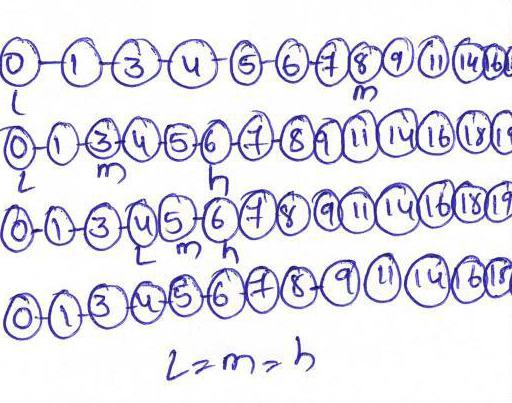 0 1 3 4 5 6 7 8 9 11 14 16
L m
0 1 3 4 5 6 7 8 9 11 14 16 18 19
L m h
0 1 3 4 5 6 7 8 9 11 14 16 18 19
L m h
0 1 3 4 5 6 7 8 9 11 14 16 18
L = m = h